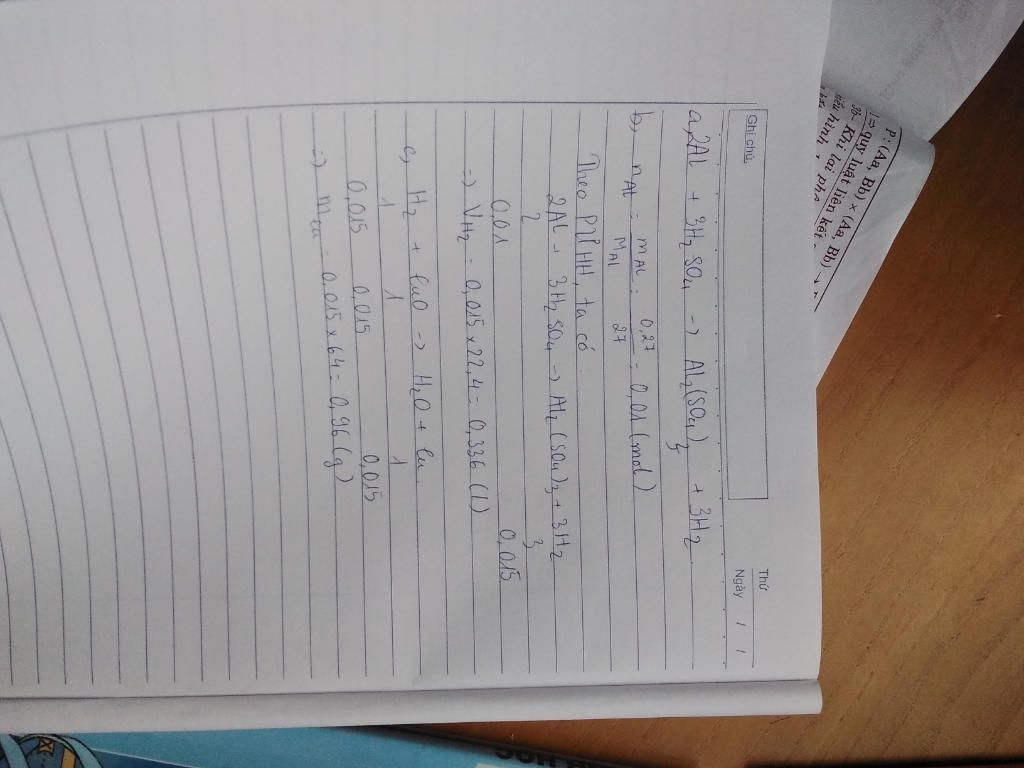 Ghi chú
Thứ
Ngày / /
a, 2Al + 3H₂SO₄ -> Al₂(SO₄)₃ + 3H₂
b, nAl = mAl/MAl = 0,27/27 = 0,01 (mol)
Theo PTHH, ta có:
2Al + 3H₂SO₄ -> Al₂(SO₄)₃ + 3H₂
2 3
0,01 0,015
=> VH₂ = 0,015 x 22,4 = 0,336 (l)
c, H₂ + CuO -> H₂O + Cu
1 1 1
0,015 0,015 0,015
=> mCu = 0,015 x 64 = 0,96 (g)
P: (Aa, Bb) x (Aa, Bb)
quy luật liên kết
Khi lai